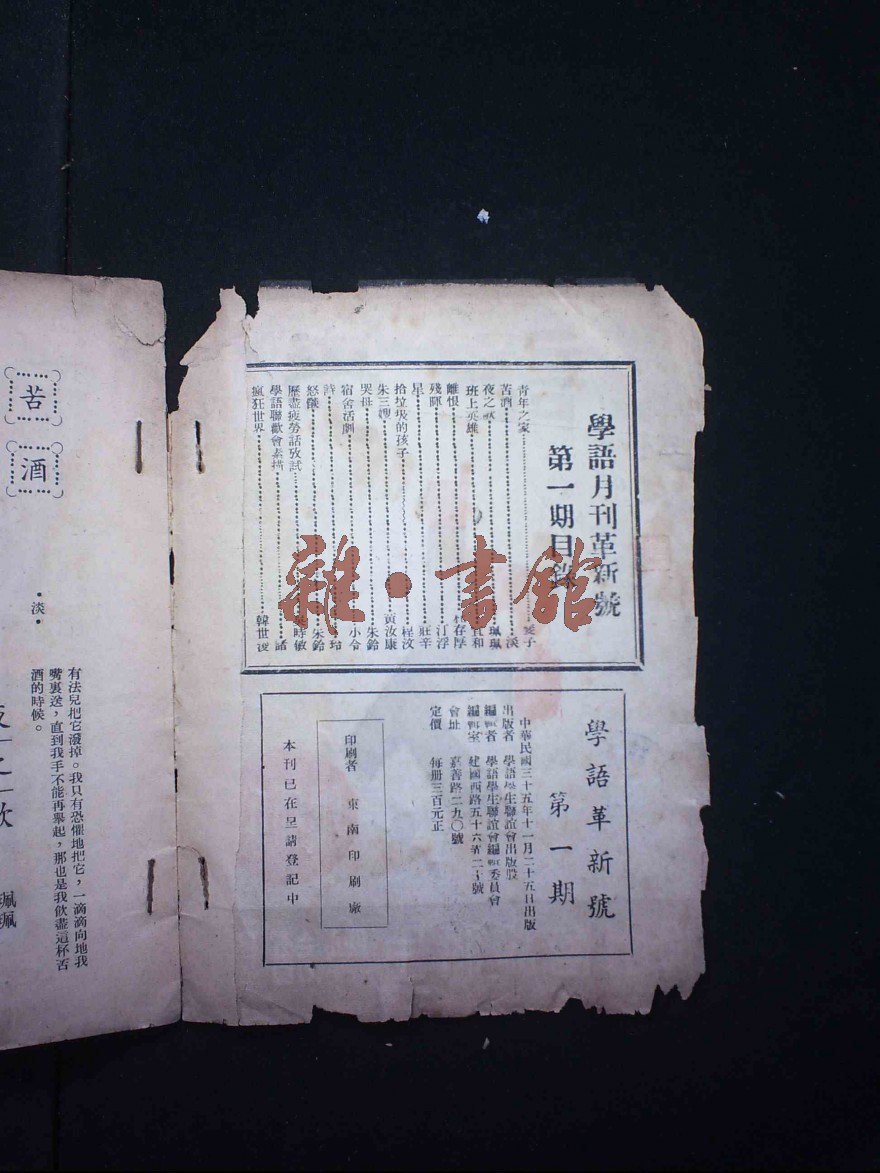 學語月刊革新號
第一期目錄
青年之家
苦酒 淡
夜之歌 珮珮
班上英雄
離恨 存厚
殘暉 汀浮
星 莊辛
拾垃圾的孩子 桯汶
朱三嫂 黃汝康
哭母 朱鈴
宿舍活劇 小令
詩 玲
怒髮 朱鈴
歷盡疲勞話攷試 時敏
學語聯歡會素描 諸
瘋狂世界 韓世凌
學語革新號
第一期
中華民國三十五年十一月二十五日出版
出版者 學語學生聯誼會出版股
編輯者 學語學生聯誼會編輯委員會
編輯室 建國西路五十六弄二號
會址 嘉善路二九〇號
定價 每册三百元正
印刷者 東南印刷廠
本刊已在呈請登記中
雜·書館
苦酒
·淡·
有法兒把它潑掉。我只有恐懼地把它，一滴滴向地我
嘴裏送，直到我手不能再舉起，那也是我飲盡這杯苦
酒的時候。
珮珮